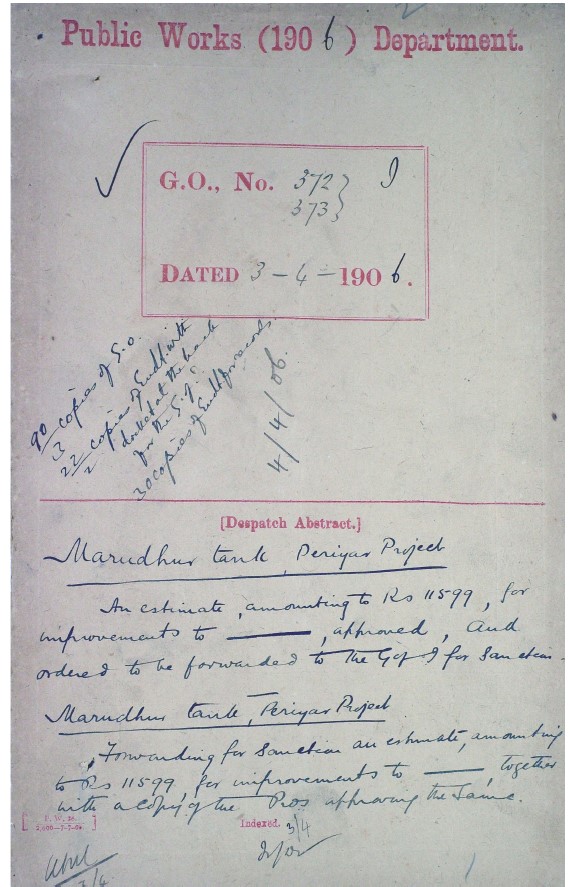 Public Works (1906) Department.
G.O., No. 372 } I
373 }
DATED 3-4-1906.
90 copies of G.O.
3
22 copies of Endt with
2 docket at the back
for the G.I.
30 copies of Endt for records.
4/4/06.
[Despatch Abstract.]
Marudhur tank, Periyar Project
An estimate, amounting to Rs 11599, for
improvements to ———, approved, and
ordered to be forwarded to the G of I for Sanction.
Marudhur tank, Periyar Project
Forwarding for Sanction an estimate, amounting
to Rs 11599, for improvements to ——— together
with a copy of the Pros approving the same.
[P. W. 36.
2,000—7-7-04]
Indexed. 3/4
3/4